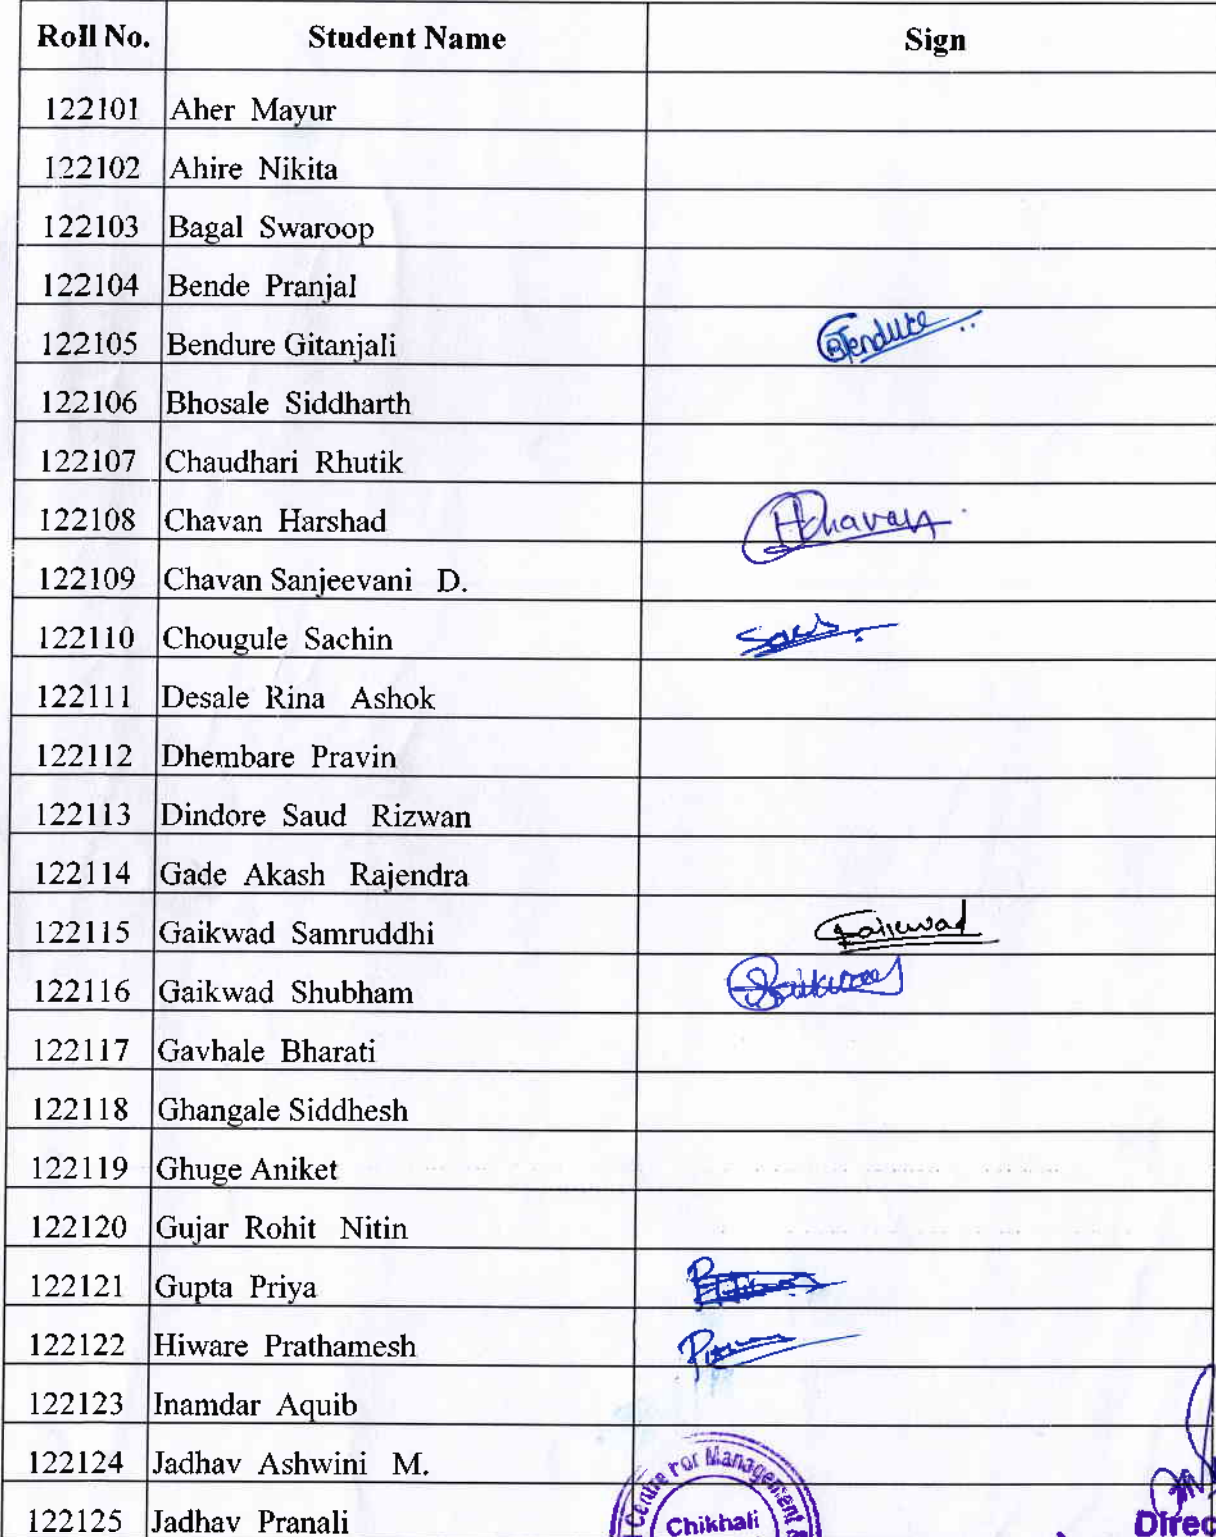 Roll No. Student Name Sign
122101 Aher Mayur
122102 Ahire Nikita
122103 Bagal Swaroop
122104 Bende Pranjal
122105 Bendure Gitanjali Bendure
122106 Bhosale Siddharth
122107 Chaudhari Rhutik
122108 Chavan Harshad HChavan
122109 Chavan Sanjeevani D.
122110 Chougule Sachin
122111 Desale Rina Ashok
122112 Dhembare Pravin
122113 Dindore Saud Rizwan
122114 Gade Akash Rajendra
122115 Gaikwad Samruddhi Gaikwad
122116 Gaikwad Shubham SGaikwad
122117 Gavhale Bharati
122118 Ghangale Siddhesh
122119 Ghuge Aniket
122120 Gujar Rohit Nitin
122121 Gupta Priya
122122 Hiware Prathamesh
122123 Inamdar Aquib
122124 Jadhav Ashwini M.
Centre For Management
122125 Jadhav Pranali Chikhali Direc